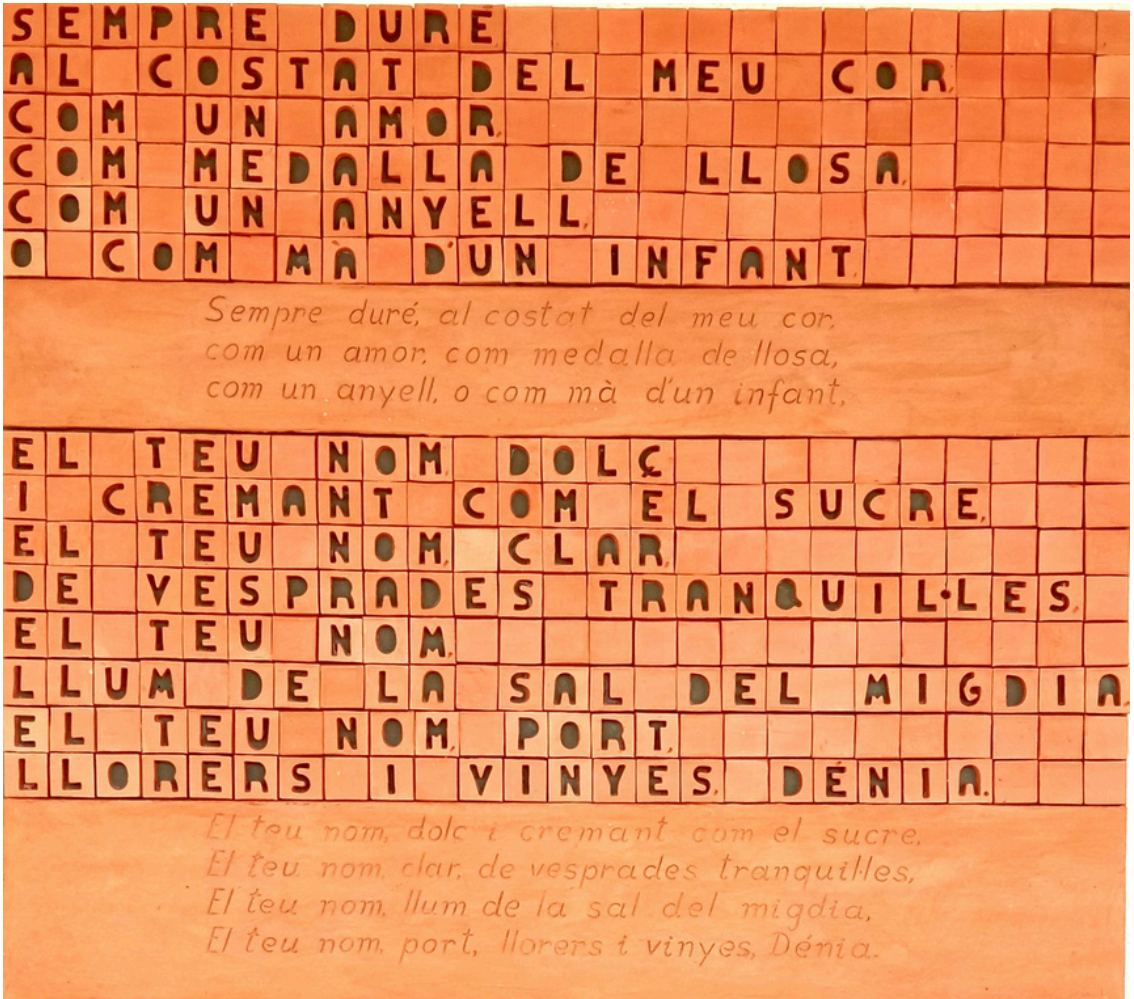 SEMPRE DURÉ
AL COSTAT DEL MEU COR,
COM UN AMOR,
COM MEDALLA DE LLOSA,
COM UN ANYELL,
O COM MÀ D'UN INFANT
Sempre duré, al costat del meu cor,
com un amor, com medalla de llosa,
com un anyell, o com mà d'un infant,
EL TEU NOM, DOLÇ
I CREMANT COM EL SUCRE,
EL TEU NOM, CLAR,
DE VESPRADES TRANQUIL·LES,
EL TEU NOM,
LLUM DE LA SAL DEL MIGDIA,
EL TEU NOM, PORT,
LLORERS I VINYES, DÉNIA.
El teu nom, dolc i cremant com el sucre,
El teu nom, clar, de vesprades tranquil·les,
El teu nom, llum de la sal del migdia,
El teu nom, port, llorers i vinyes, Dénia.